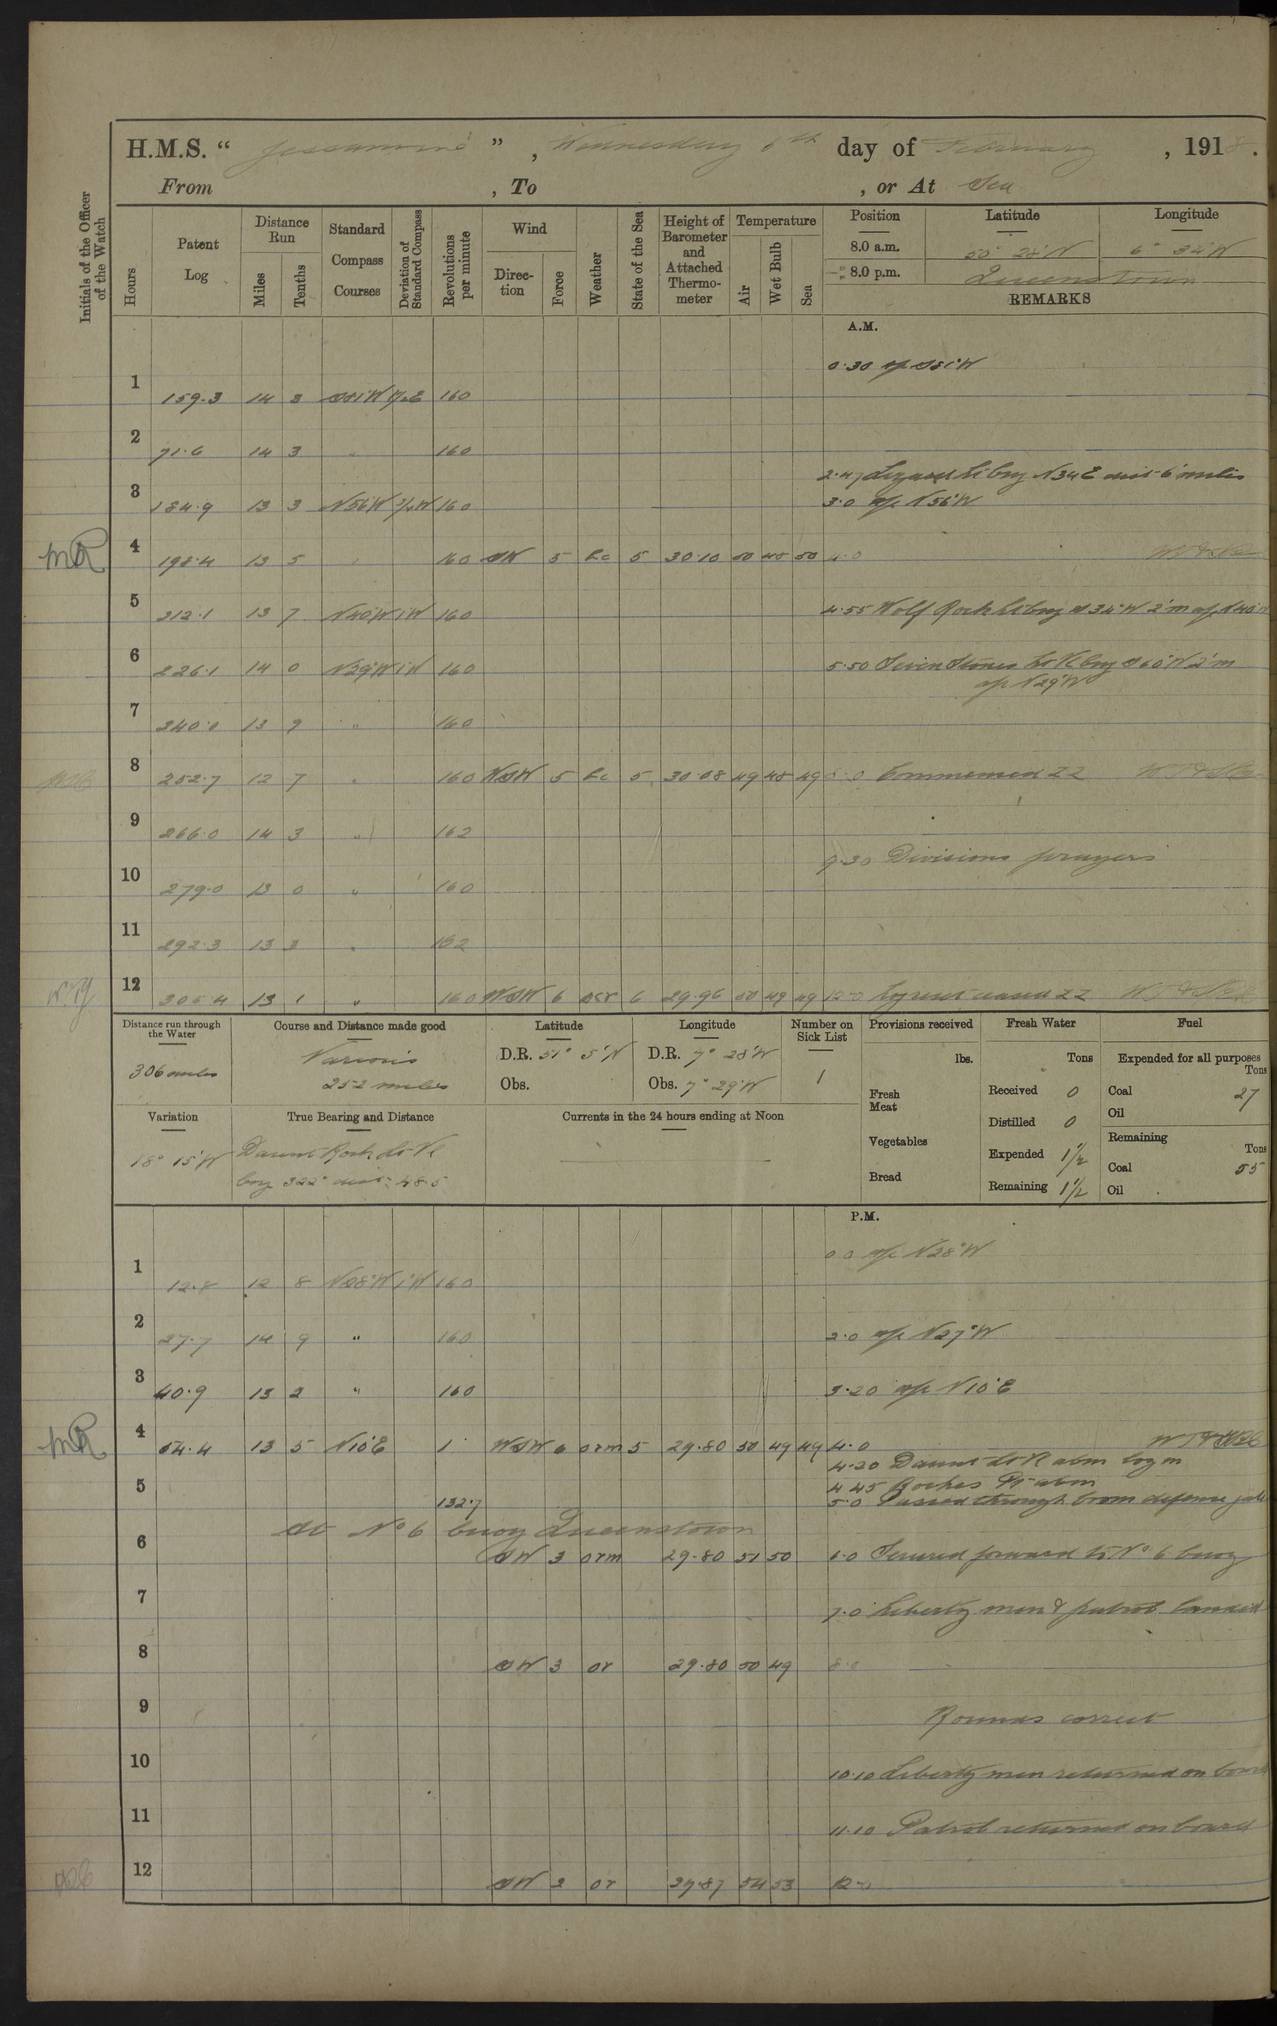 H.M.S. " Jessamine " , Wednesday 6th day of February , 1918.
From , To , or At Sea
Initials of the Officer of the Watch
Hours
Patent Log
Distance Run
Miles
Tenths
Standard Compass Courses
Deviation of Standard Compass
Revolutions per minute
Wind
Direction
Force
Weather
State of the Sea
Height of Barometer and Attached Thermometer
Temperature
Air
Wet Bulb
Sea
Position Latitude Longitude
8.0 a.m. 50° 28' N 6° 34' W
8.0 p.m. Queenstown
REMARKS
A.M.
0.30 a/c S81°W
1 159.3 14 3 S81°W 160
2 71.6 14 3 " 160
2.47 Lizard Lt brg N34E dist 6' miles
3 184.9 13 3 N56°W 160 3.0 a/c N56°W
4 198.4 13 5 160 SW 5 bc 5 30.10 50 48 50 4.0
5 212.1 13 7 N40°W 1°W 160 4.55 Wolf Rock Lt brg S34°W 2'm a/c N40°W
6 226.1 14 0 N29°W 1°W 160 5.50 Seven Stones Lt V. brg S60°W 2'm
a/c N29°W
7 240.0 13 9 " 160
8 252.7 12 7 " 160 WSW 5 bc 5 30.08 49 48 49 8.0 Commenced ZZ
9 266.0 14 3 " 162
9.30 Divisions prayers
10 279.0 13 0 " 160
11 292.3 13 3 " 162
12 305.4 13 1 " 160 WSW 6 ocr 6 29.96 50 49 49 12.0 ceased ZZ
Distance run through the Water
306 miles
Course and Distance made good
Various
252 miles
Latitude
D.R. 51° 5' N
Obs.
Longitude
D.R. 7° 28' W
Obs. 7° 29' W
Number on Sick List
1
Provisions received
lbs.
Fresh Meat
Vegetables
Bread
Fresh Water
Tons
Received 0
Distilled 0
Expended 1½
Remaining 1½
Fuel
Expended for all purposes
Tons
Coal 27
Oil
Remaining
Tons
Coal 55
Oil
Variation
18° 15' W
True Bearing and Distance
Daunt Rock Lt V.
brg 322° dist: 48.5
Currents in the 24 hours ending at Noon
P.M.
0.0 a/c N28°W
1 12.8 12 8 N28°W 1°W 160
2 27.7 14 9 " 160 2.0 a/c N27°W
3 40.9 13 2 " 160 3.20 a/c N10°E
4 54.4 13 5 N10°E 1 WSW 6 orm 5 29.80 50 49 49 4.0
4.20 Daunt Lt V. abm
4.45 Roches Pt abm
5 132.7 5.0 Passed through boom defense gate
At No 6 buoy Queenstown
6 SW 3 orm 29.80 51 50 6.0 Secured forward to No 6 buoy
7 7.0 Liberty men & patrol landed
8 SW 3 or 29.80 50 49 8.0
9 Rounds correct
10 10.10 Liberty men returned on board
11 11.10 Patrol returned on board
12 SW 2 or 29.87 54 53 12.0